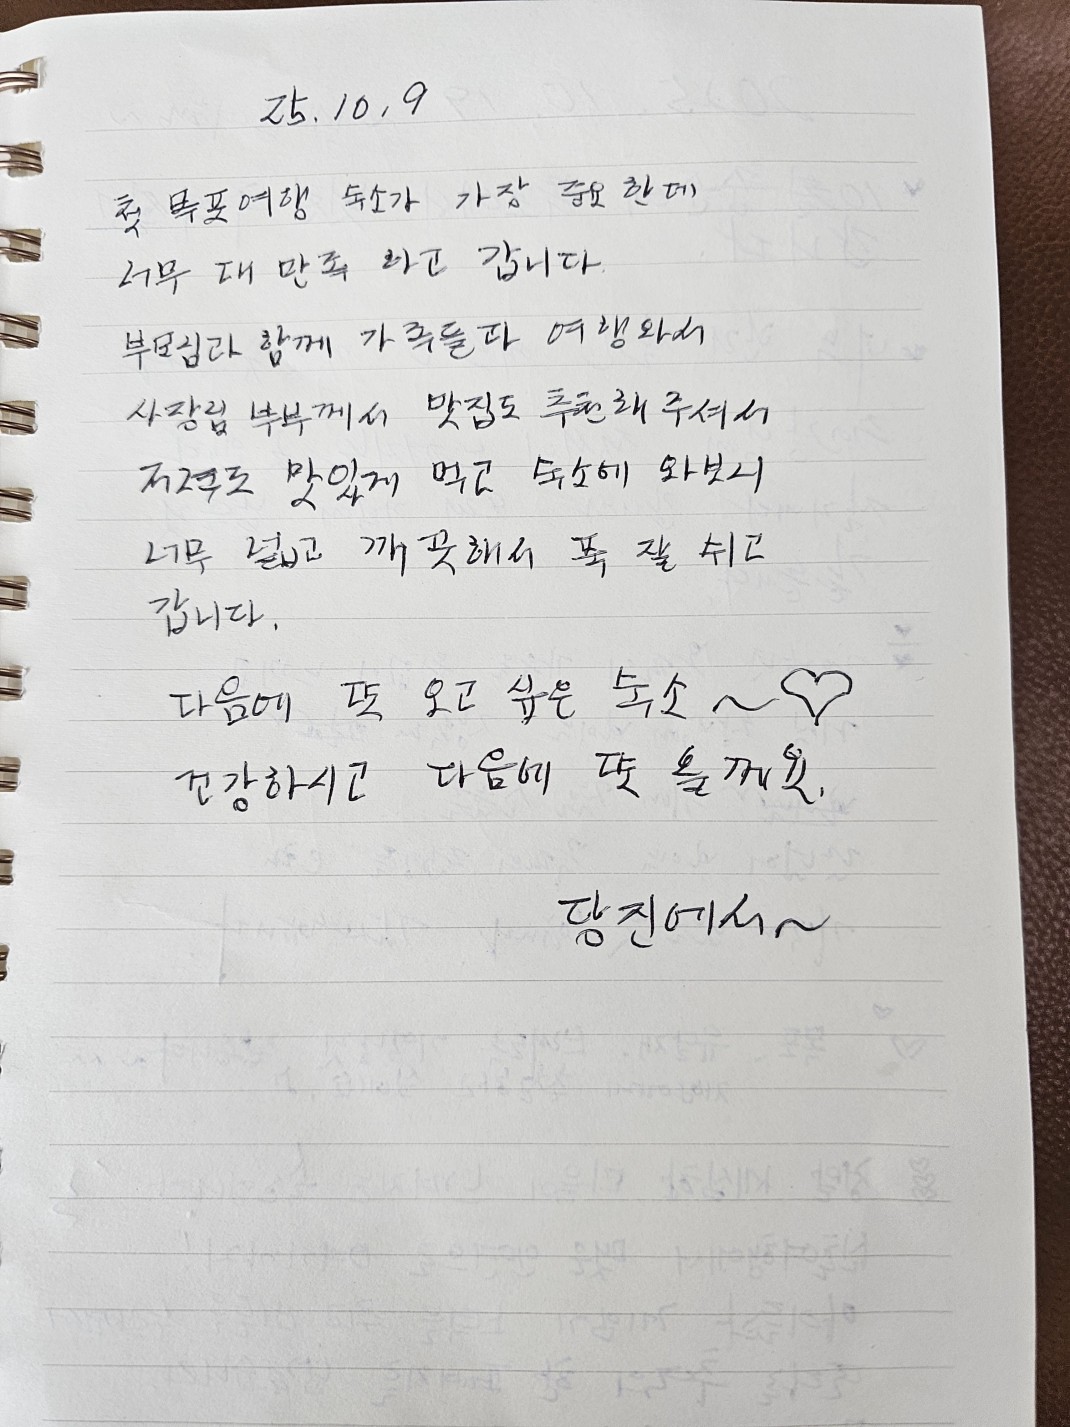 25.10.9
첫 목포여행 숙소가 가장 중요한데
너무 대 만족 하고 갑니다.
부모님과 함께 가족들과 여행와서
사장님 부부께서 맛집도 추천해주셔서
저격도 맛있게 먹고 숙소에 와보니
너무 넓고 깨끗해서 푹 잘 쉬고
갑니다.
다음에 또 오고 싶은 숙소~♡
건강하시고 다음에 또 올께요.
당진에서~